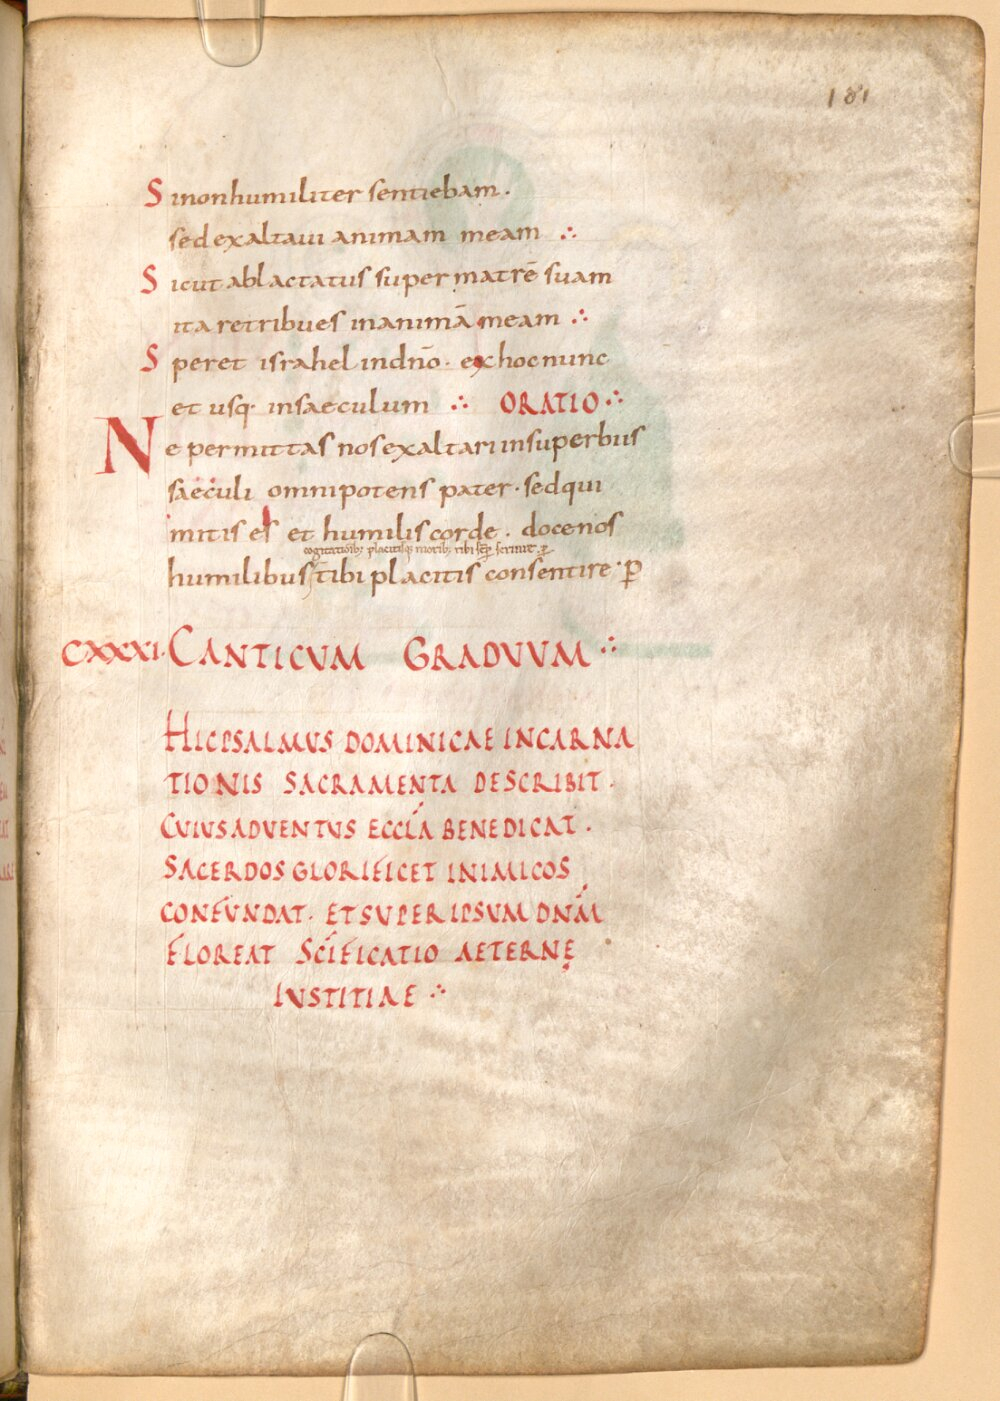 181
Sinonhumiliter sentiebam·
sed exaltaui animam meam ∴
Sicut ablactatus super matrē suam
ita retribues inanimā meam ∴
Speret israhel indn̄o· exhocnunc
et usq· insaeculum ∴ ORATIO ∴
Ne permittas nosexaltari insuperbus
saeculi omnipotens pater· sedqui
mitis es et humilis corde· docenos
cogitationib; placitisq; motib; tibi
humilibus tibi placitis consentire· ꝑ
CXXXI· CANTICUM GRADUUM ∴
HICPSALMUS DOMINICAE INCARNA
TIONIS SACRAMENTA DESCRIBIT·
CUIUSADVENTUS ECCLA BENEDICAT·
SACERDOS GLORIFICET INIMICOS
CONFUNDAT· ETSUPERIPSUM DNM
FLOREAT SCIFICATIO AETERNĘ
IUSTITIAE ∴